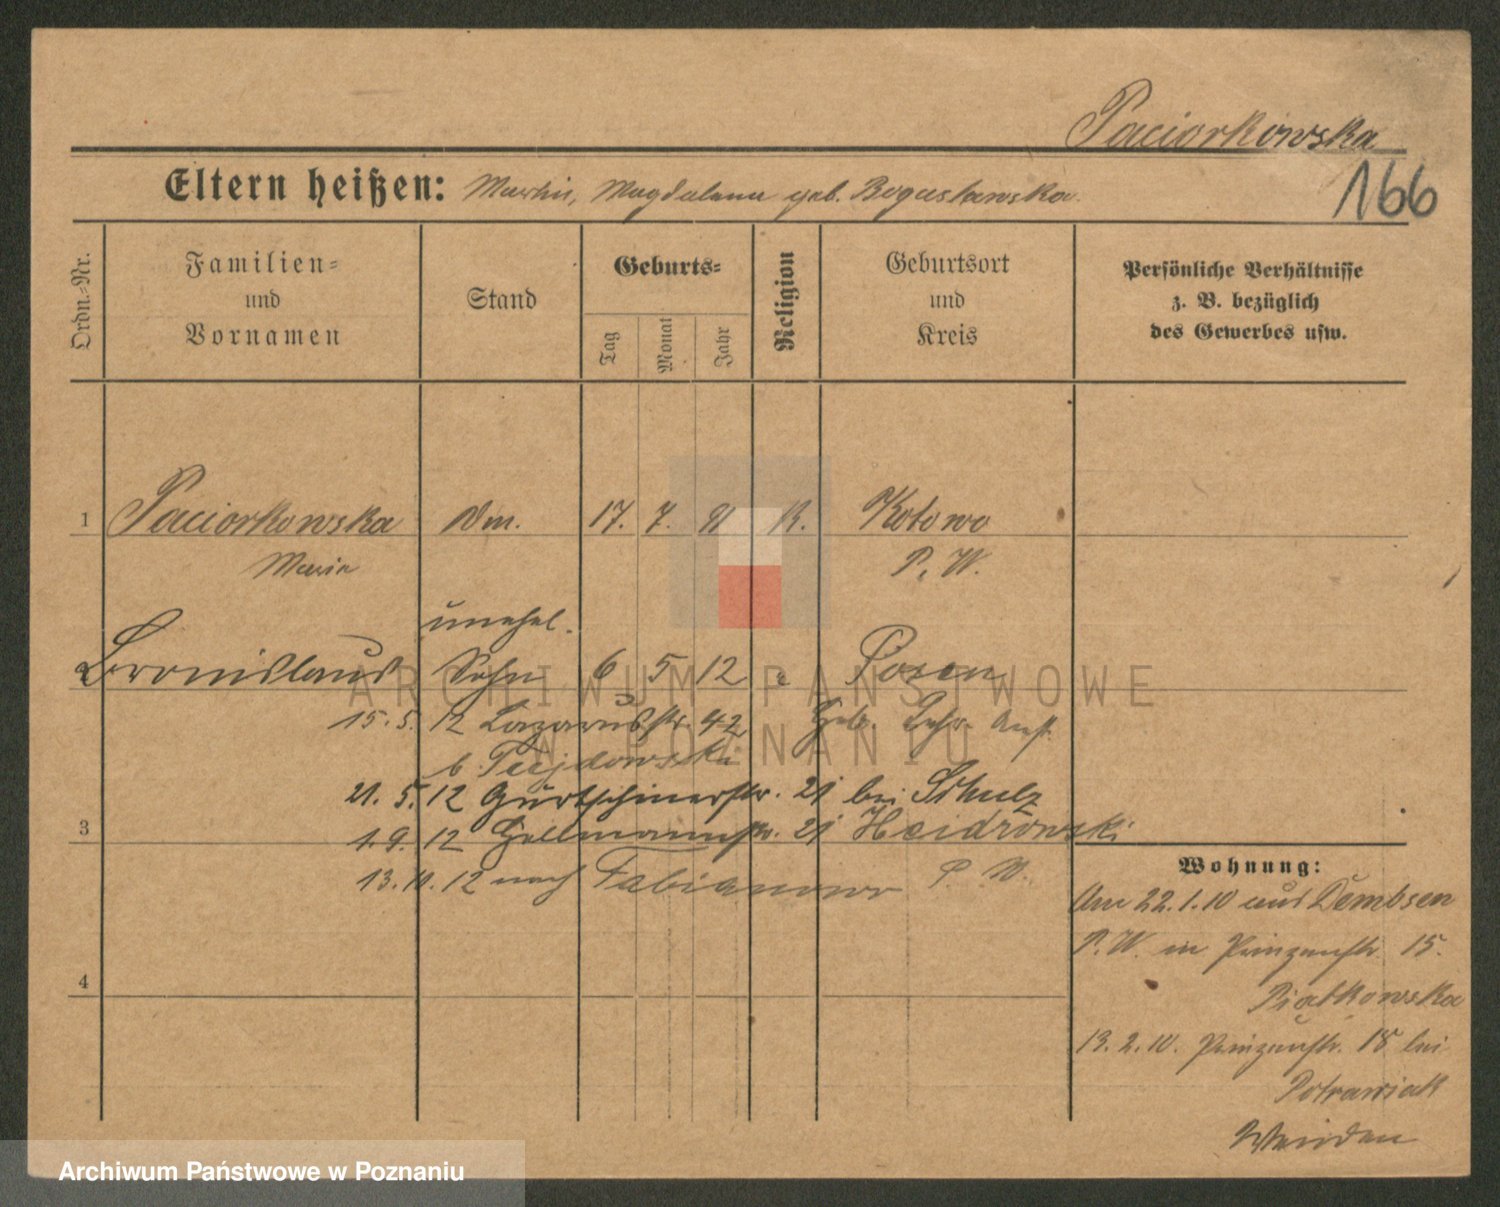 Paciorkowska
166
Eltern heißen: Martin, Magdalena geb. Bogusławska.
Ordn.-Nr.
Familien-
und
Vornamen
Stand
Geburts-
Tag
Monat
Jahr
Religion
Geburtsort
und
Kreis
Persönliche Verhältnisse
z. B. bezüglich
des Gewerbes usw.
1 Paciorkowska Dm. 17. 7. 91 K. Kotowo
Maria P. W.
unehel.
Bronislaus Sohn 6 5 12 Posen
15. 5. 12 Lazarusstr. 42 Geb. Lehr Anst.
b
21. 5. 12 Gurtschinerstr. 21 bei Schulz
3
1. 9. 12 Hellmannstr. 21 Heidrowski
13. 10. 12 nach Fabianowo P. W.
4
Wohnung:
Am 22.1.10 aus Dembsen
P. W. in Prinzenstr. 15.
Piątkowska
13. 2. 10. Prinzenstr. 18 bei
Potrawiak
ARCHIWUM PAŃSTWOWE
W POZNANIU
Archiwum Państwowe w Poznaniu